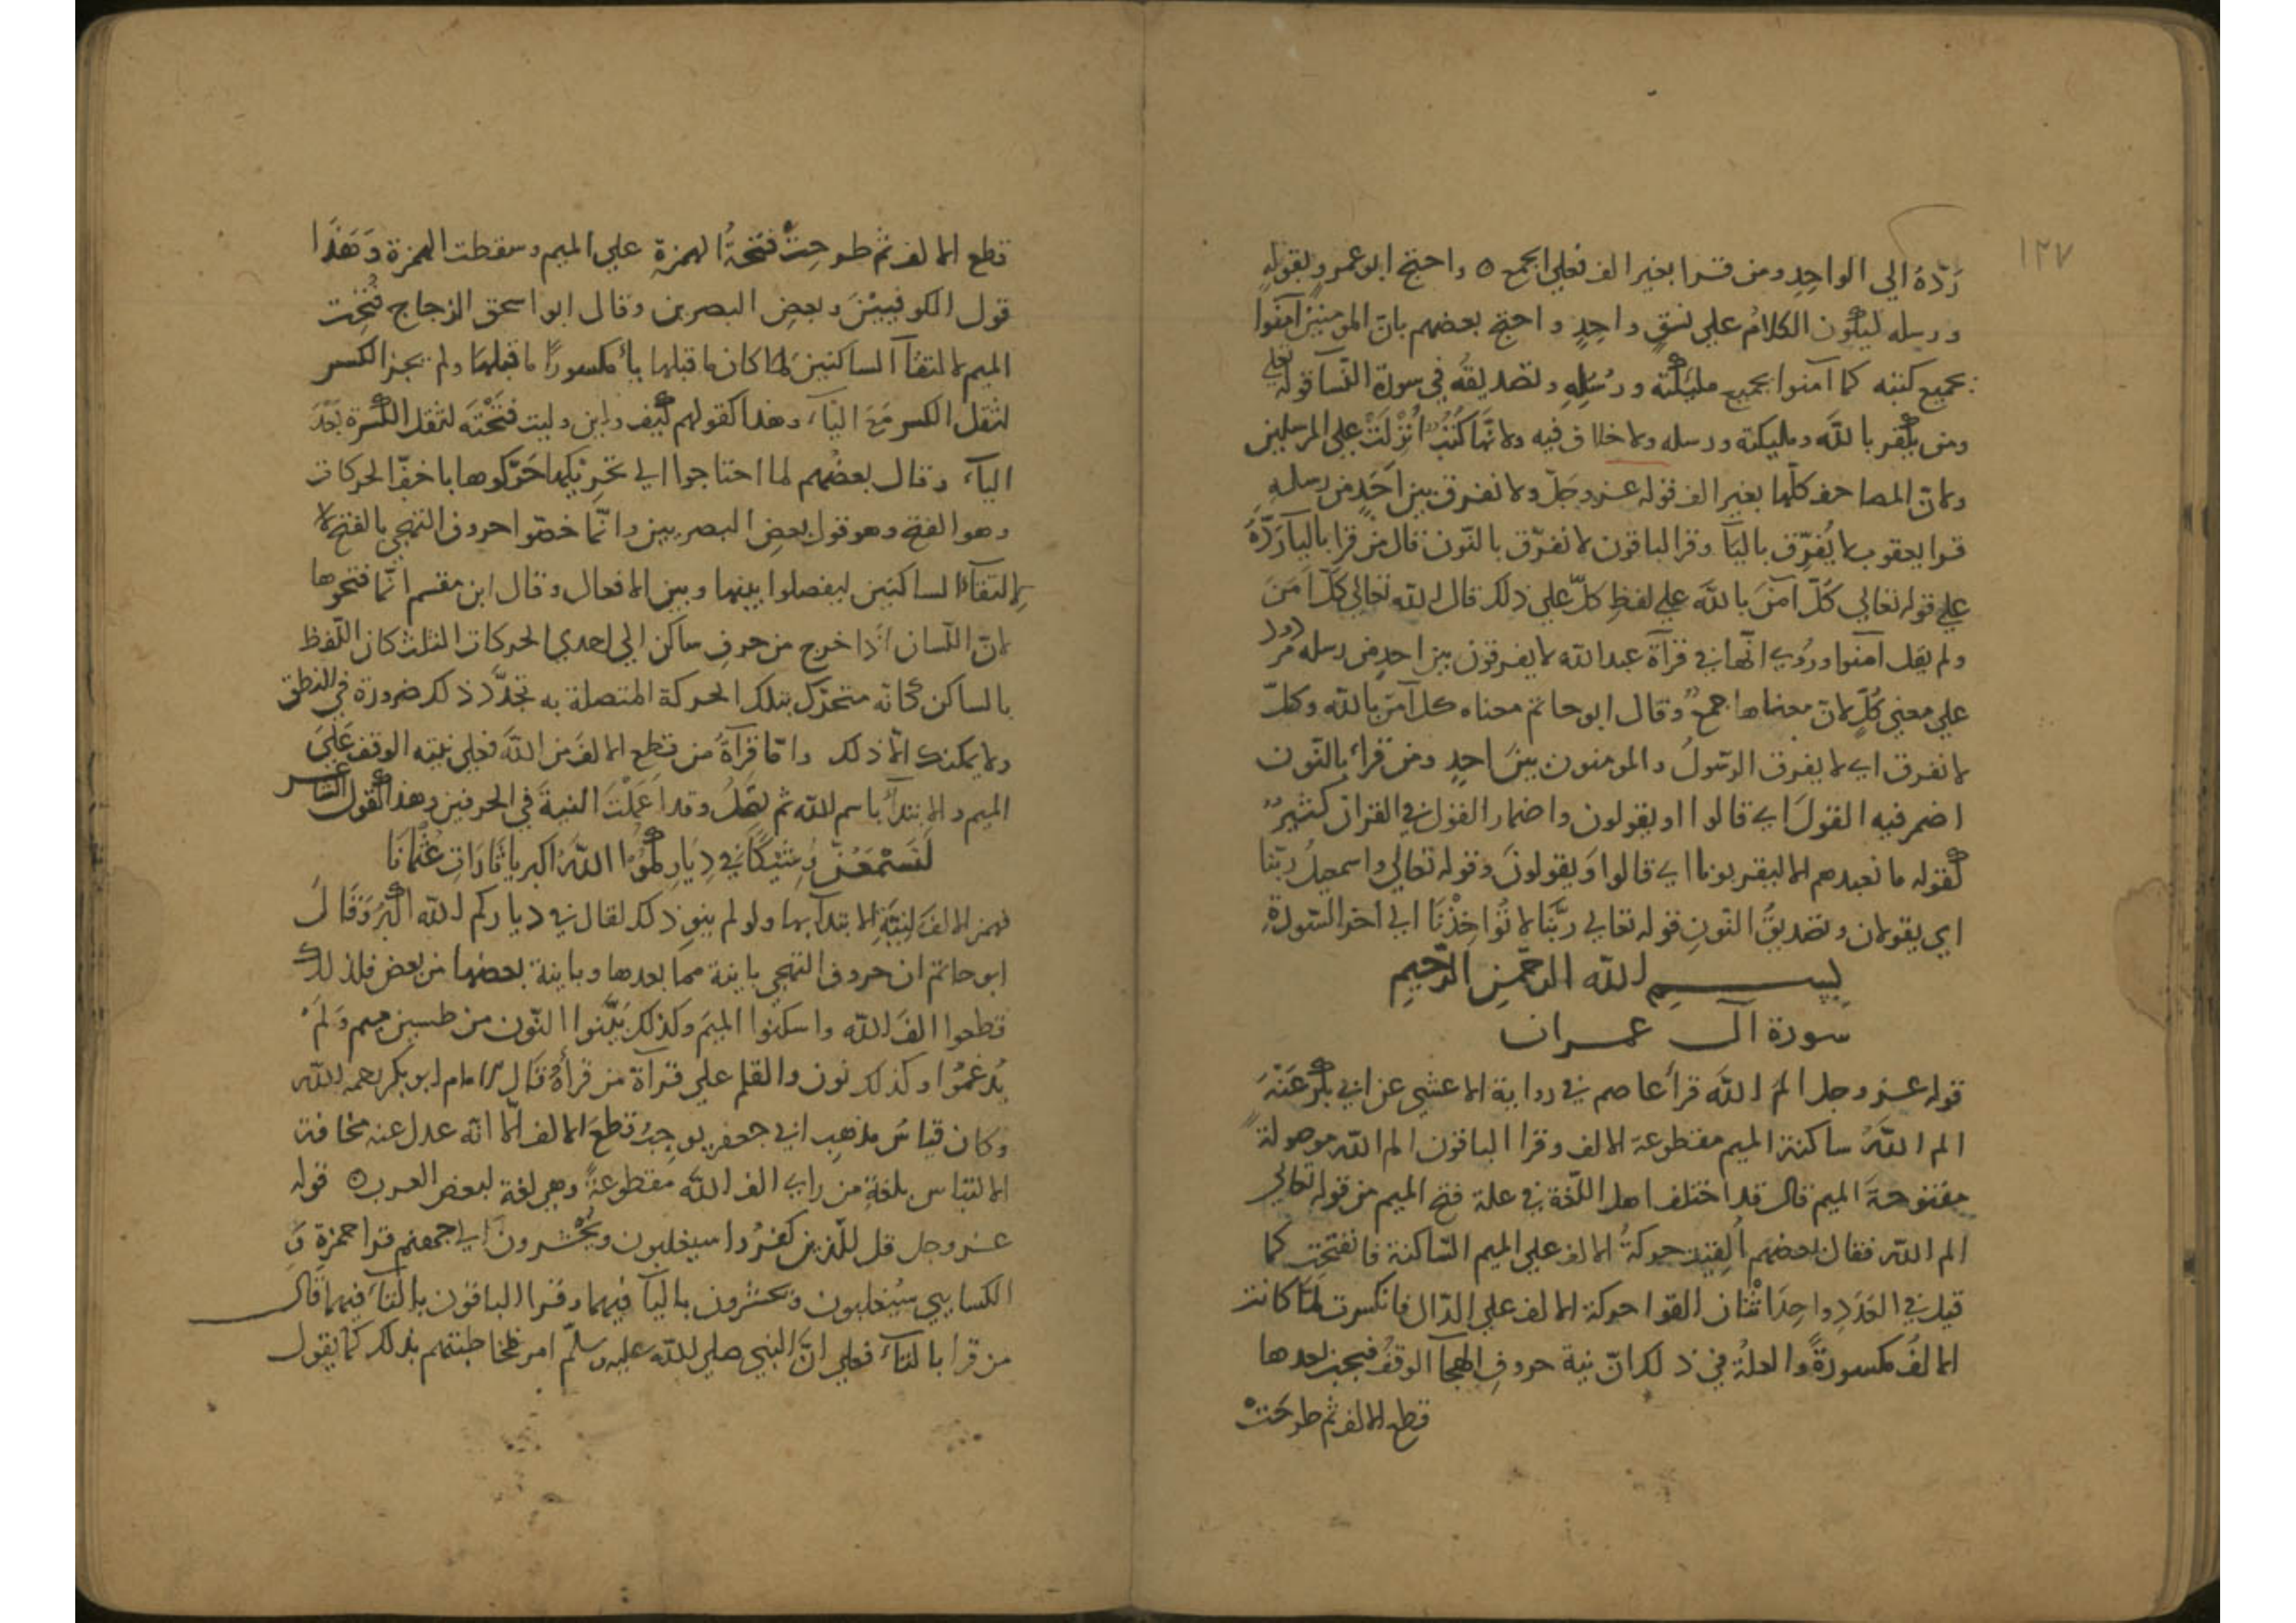 ١٢٧
رَدّهُ الي الواحِدِ ومن قرا بغير الف فعلي الجمع ٥ واحتج ابو عمرو بقوله
ورسله ليكون الكلامُ علي نسقٍ واحِدٍ واحتج بعضهم بانّ المومنين آمَنُوا
بجميع كتبه كما آمنوا بجميع مليكته ورسُلِهِ وتصديقه في سورة النّسا قوله تعلي
ومن يكفر باللّه ومليكته ورسله ولا خلاف فيه ولانّها كُتُبٌ اُنْزِلَتْ علي المرسلين
ولانّ المصاحف كلّها بغير الف قوله عز وجَلّ ولا نفرق بين اَحَدٍ من رسلِهِ
قرا يعقوب لا يُفرّق باليآ وقرا الباقون لا نفرّق بالنّون قال من قرا باليآ رَدَّهُ
علي قوله تعالي كُلّ آمنَ باللّه علي لفظِ كلّ علي ذلك قال اللّه تعالي كلّ آمَنَ
ولم يقل آمنوا ورُوي انّها في قرآة عبد اللّه لا يفرقون بين احدٍ من رسله مردود
علي معني كُلٍّ لانّ معناها جمعٌ وقال ابو حاتم معناه كل آمن باللّه وكلّ
لا نفرق اي لا يفرق الرّسولُ والمومنون بينَ احدٍ ومن قراَ بالنّون
اضمر فيه القولَ اي قالوا او يقولون واضمار القول في القران كثيرٌ
كقوله ما نعبدهم الا ليقربونا اي قالوا وَيقولونَ وقوله تعالي واسمعيلُ ربّنا
اي يقولان وتصديقُ النّونِ قوله تعالي ربَّنَا لا تُوَاخِذْنَا الي اخر السّورةِ
بِسْــمِ اللّه الرّحمنِ الرَّحِيمِ
سورة آل عمران
قوله عز وجل الم اللّهَ قرأ عاصم في رواية الاعشي عن ابي بكر عَنْهُ
الم اللّهُ ساكنة الميم مقطوعة الالف وقرا الباقون الم اللّه موصولةً
مفتوحةَ الميم قال قد اختلف اهل اللّغة في علة فتح الميم من قوله تعالي
الم اللّه فقال بعضهم اُلقيت حركةُ الالف علي الميم السّاكنة فانفتحت كما
قيل في العَدَدِ واحِدَ اثْنَان القوا حركة الالف علي الدّال فانكسرت لمّا كانت
الالفُ مكسورةً والعلّةُ في ذلك انّ نية حروفِ الهجآ الوقفُ فيجب بعدها
قطع الالف ثم طرحَتْ
قطع الالف ثم طرحِتْ فَتْحةُ الهمزةِ علي الميم وسقطت الهمزة وَهَذَا
قول الكوفيينَ وبعضِ البصرين وقال ابو اسحق الزجاج فُتِحت
الميم لالتقآ الساكنين لمّا كان ما قبلها يأ مكسورًا ما قبلها ولم يجز الكسر
لثقل الكسر مَعَ اليآ، وهذا كقولهم كيف واين وليت فتحْتَه لثقل الكسرة بَعْدَ
اليآ، وقال بعضُهم لما احتاجوا الي تحريكها حَرَّكوها باخفّ الحركات
وهو الفتح وهو قول بعض البصريين وانّما خصّوا حروف التهجي بالفتح لا
لالتقآ الساكنين ليفصلوا بينها وبين الافعال وقال ابن مقسم انّما فتحوها
لانّ اللّسان اذا خرج من حرفِ ساكن الي احدي الحركات الثلث كان اللّفظ
بالساكن كانّه متحرّك بتلك الحركة المتصلة به تجدّد ذلك ضرورة في النطق
ولا يمكنك الّا ذلك وامّا قِرآةُ من قطع الالفَ من اللّهَ فعلي نيّته الوقفَ عَلَي
الميم والابتدآ باسم اللّه ثم يصِلُ وقد اعملْتَ النيةَ في الحرفين وهذا كقول الشاعر
لَتَسْمَعُنَّ وشيْكًا في دِيَارِكُمُ اللّهُ اكبر ياثَارَاتِ عُثْمَانَا
فهمز الالفَ لِنيّةِ الابتدآ بها ولو لم ينوِ ذلك لقال في دياركم اللّه اكْبَرُ وَقَالَ
ابو حاتم ان حروف التهجي باينة مما بعدها وباينة بعضها من بعض فلذلك
قطعوا الفَ اللّه واسكنوا الميمَ وكذلك بَيَّنوا النّون من طسين ميم وَلَمْ
يُدغمُوا وكذلك نون والقلم علي قرآة من قرأهُ قَال الامام ابو بكر رحمه اللّه
وكان قياسُ مذهبِ ابي جعفر يوجبُ قطعَ الالف الّا انّه عدل عنه مخافة
الالتباس بلغةِ من راي الف اللّه مقطوعةً وهي لغة لبعض العرب ٥ قوله
عز وجل قل للّذين كفرُوا سيغلبون ويُحْشرون الي جهنم قرا حمزة وَ
الكسايي سيُغلبون ويحشرون باليآ فيهما وقرا الباقون بالتآ فيهما قال
من قرا بالتآ فعلي انّ النبي صلي اللّه عليه وسلّم امر مخاطبتهم بذلك كما يقول